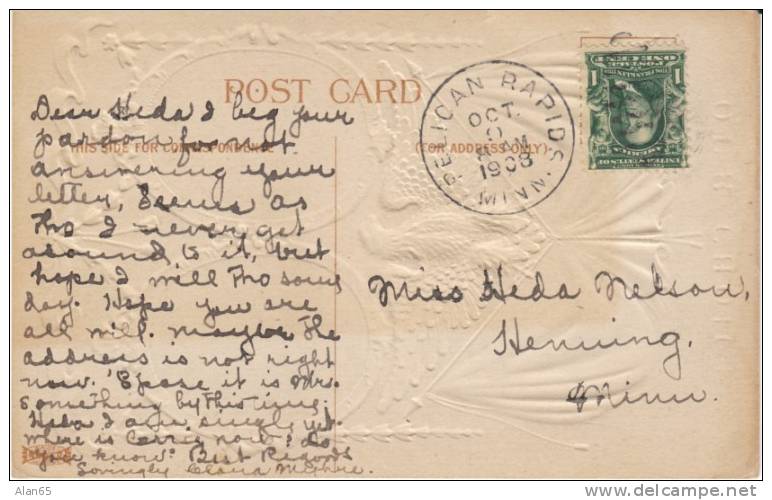 POST CARD
THIS SIDE FOR CORRESPONDENCE
(FOR ADDRESS ONLY)
PELICAN RAPIDS.
OCT.
AM
1908
MINN.
POSTAGE
ONE CENT
1 1
Dear Heda I beg your
pardon for not
answering your
letter, Seems as
tho I never get
around to it, but
hope I will tho some
day. Hope you are
all well. maybe the
address is not right
now. 'Spose it is Mrs.
Something by this time.
Heda I am single yet.
where is Carrie now? do
you know? Best Regards
Lovingly Clara
Miss Heda Nelson,
Henning,
Minn.
Alan65
http://www.delcampe.net